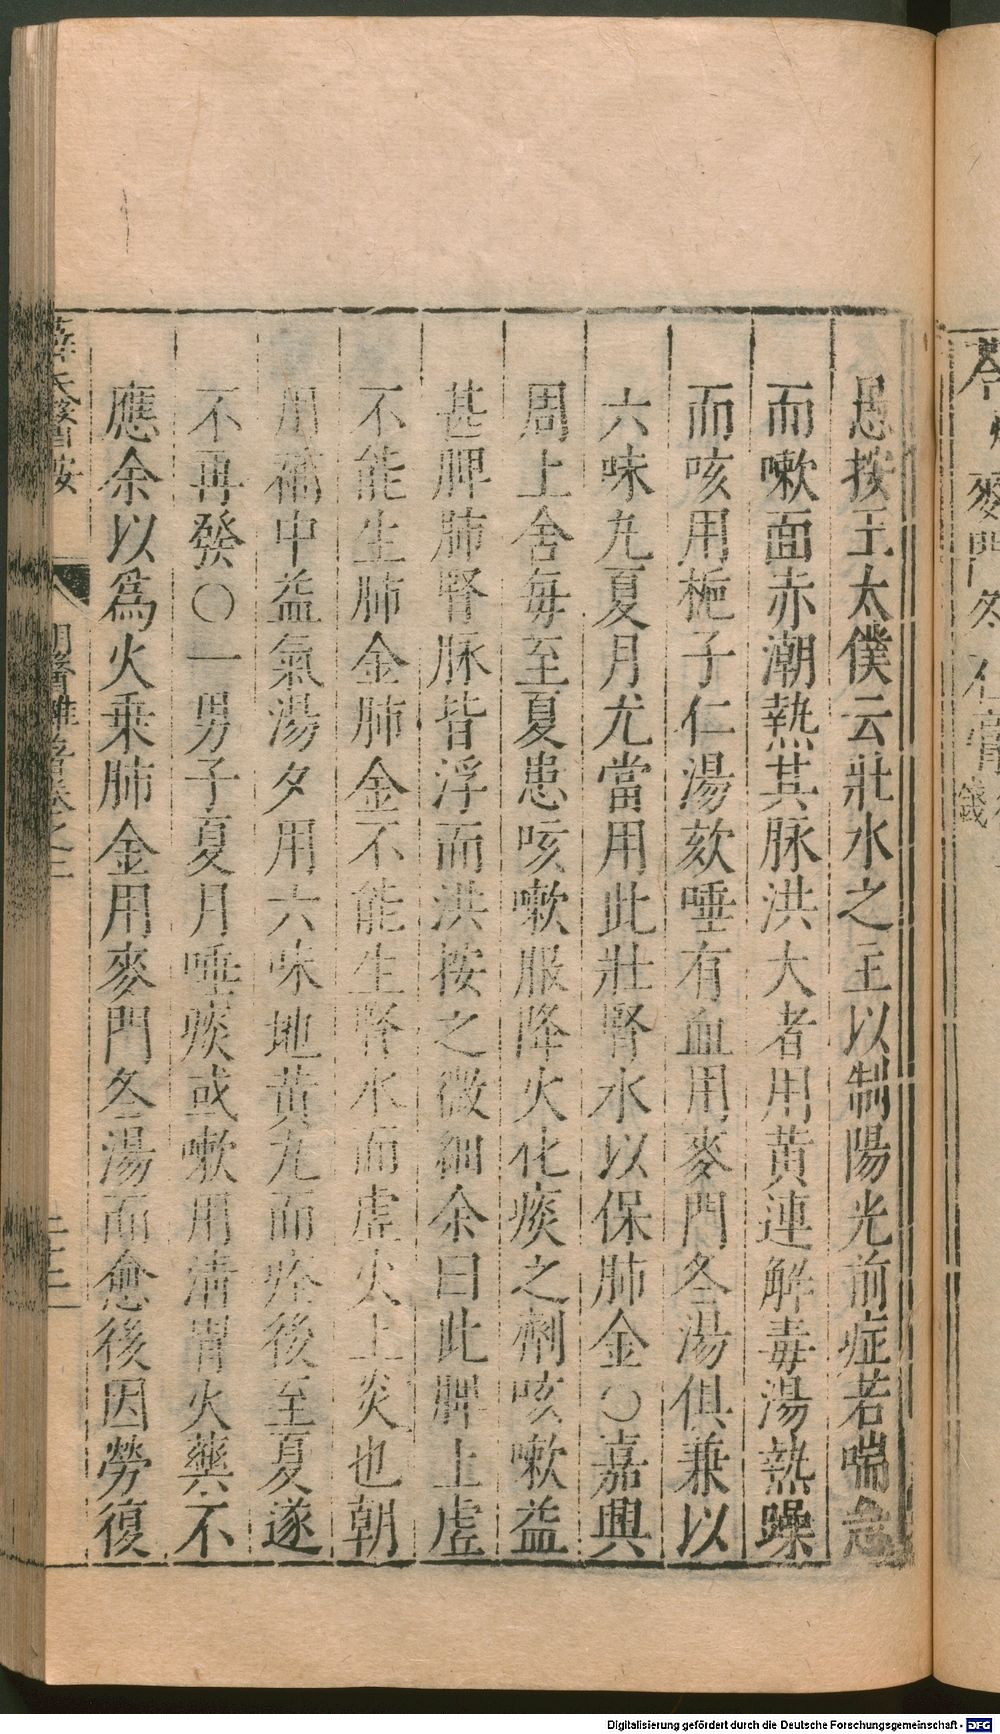 愚按王太僕云壯水之主以制陽光前症若喘急
而嗽面赤潮熱其脉洪大者用黃連解毒湯熱躁
而咳用梔子仁湯欬唾有血用麥門冬湯俱兼以
六味九夏月尤當用此壯腎水以保肺金○嘉興
周上舍每至夏患咳嗽服降火化痰之劑咳嗽益
甚脾肺腎脉皆浮而洪按之微細余曰此脾土虛
不能生肺金肺金不能生腎水而虛火上炎也朝
用補中益氣湯夕用六味地黃丸而痊後至夏遂
不再發○一男子夏月唾痰或嗽用清胃火藥不
應余以爲火乘肺金用麥門冬湯而愈後因勞復
薛氏醫按
明醫雜著卷之二
麥門冬
錢
Digitalisierung gefördert durch die Deutsche Forschungsgemeinschaft - DFG